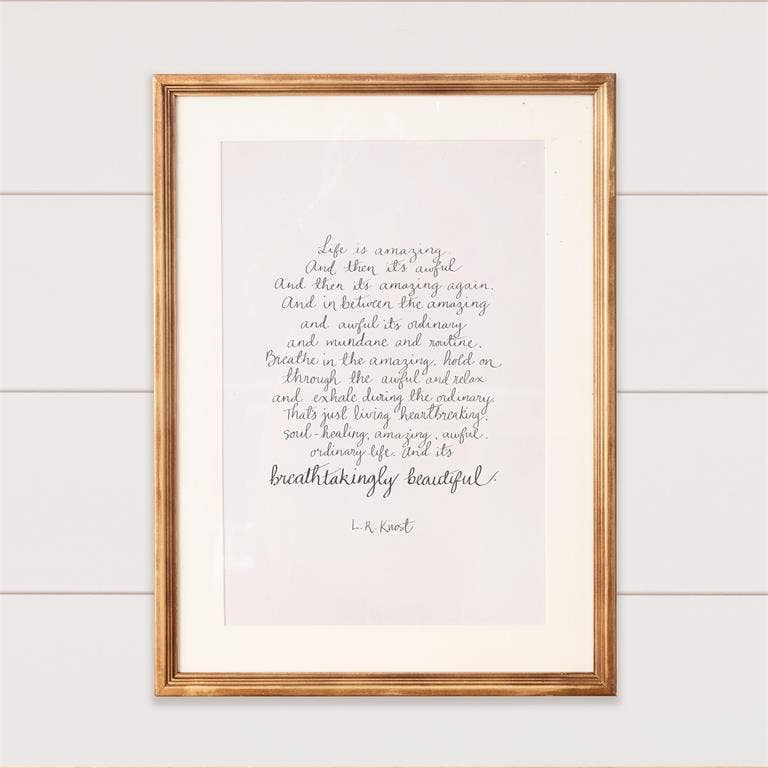 Life is amazing.
And then it's awful
And then it's amazing again.
And in between the amazing
and awful it's ordinary
and mundane and routine.
Breathe in the amazing, hold on
through the awful and relax
and exhale during the ordinary.
That's just living heartbreaking,
soul-healing, amazing, awful,
ordinary life. And it's
breathtakingly beautiful.
L.R. Knost